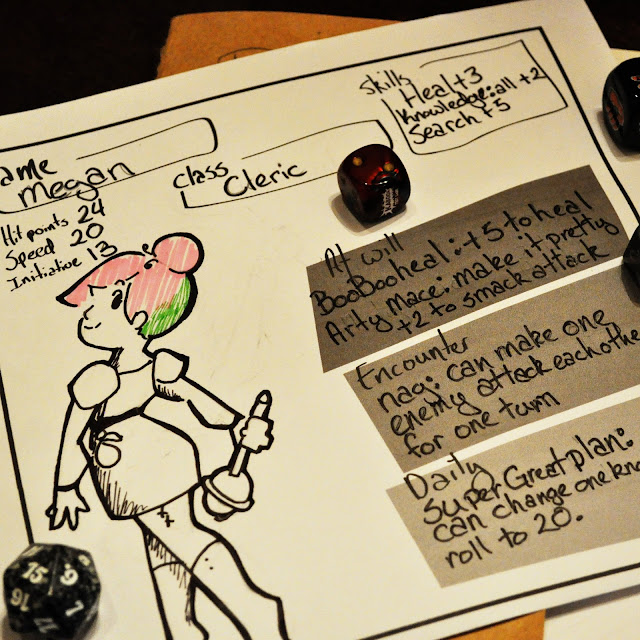 ame
Meegan
Hit points 24
Speed 20
Initiative 13
Class
Cleric
Skills
Heal+3
Knowledge:all +2
Search +5
At will
BooBoo heal: +5 to heal
Arty Mace: make it pretty
+2 to smack attack
Encounter
nag: can make one
enemy attack each othe
for one turn
Daily
Super Great Plan:
can change one
roll to 20.